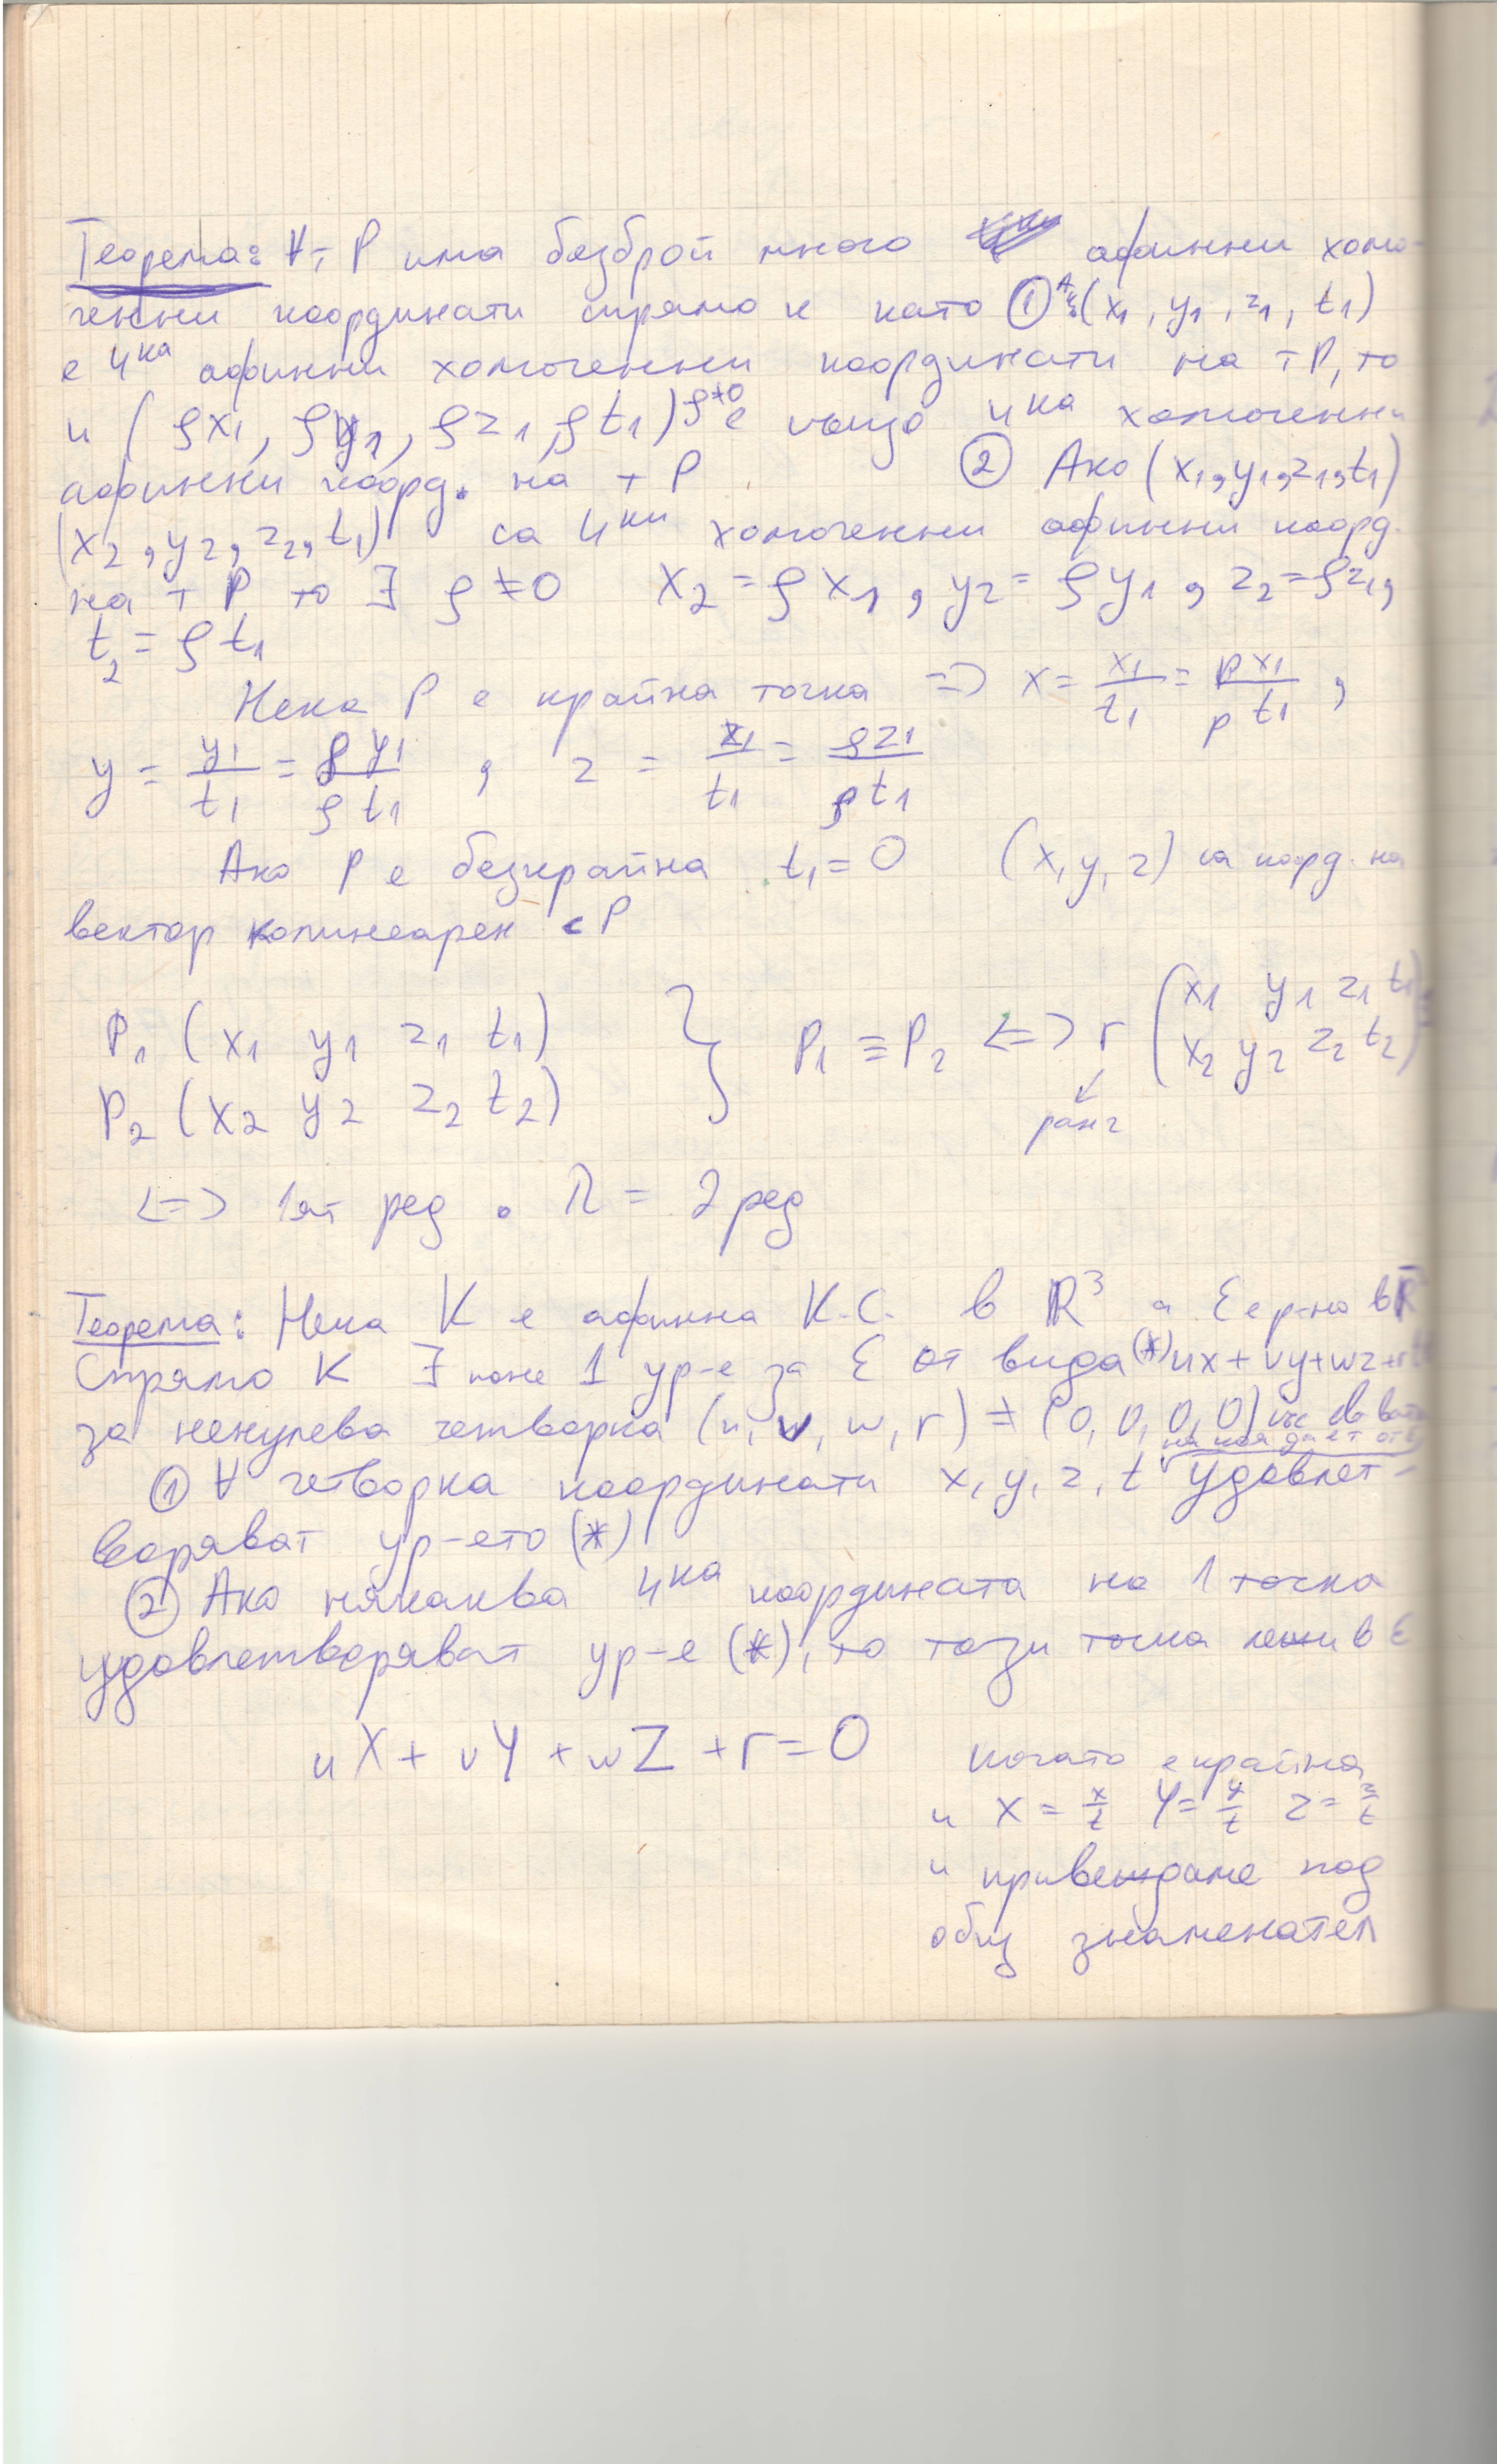 Теорема: ∀ т P има безброй много афинни хомо-
генни координати спрямо K като ① (x1, y1, z1, t1)
е 4ка афинни хомогенни координати на т P, то
и (ρx1, ρy1, ρz1, ρt1) ρ≠0 е също 4ка хомогенни
афинни коорд. на т P ② Ако (x1, y1, z1, t1)
(x2, y2, z2, t1) са 4ки хомогенни афинни коорд.
на т P то ∃ ρ ≠ 0 x2 = ρx1, y2 = ρy1, z2 = ρz1,
t2 = ρt1
Нека P е крайна точка => x = x1/t1 = ρx1/ρt1,
y = y1/t1 = ρy1/ρt1, z = z1/t1 = ρz1/ρt1
Ако P е безкрайна t1 = 0 (x, y, z) са коорд. на
вектор колинеарен с P
P1 (x1 y1 z1 t1) } P1 ≡ P2 <=> r (x1 y1 z1 t1
P2 (x2 y2 z2 t2) x2 y2 z2 t2)
ранг
<=> 1ят ред . λ = 2 ред
Теорема: Нека K е афинна К.С. в R³ а ε е р-но в R
Спрямо K ∃ поне 1 ур-е за ε от вида (*) ux + vy + wz + r
за ненулева четворка (u, v, w, r) ≠ (0, 0, 0, 0)
на коя да е т от ε
① ∀ четворка координати x, y, z, t удовлет-
воряват ур-ето (*)
② Ако някаква 4ка координата на 1 точка
удовлетворяват ур-е (*), то тази точка лежи в ε
uX + vY + wZ + r = 0 когато е крайна
и X = x/t Y = y/t Z = z/t
и привеждаме под
общ знаменател